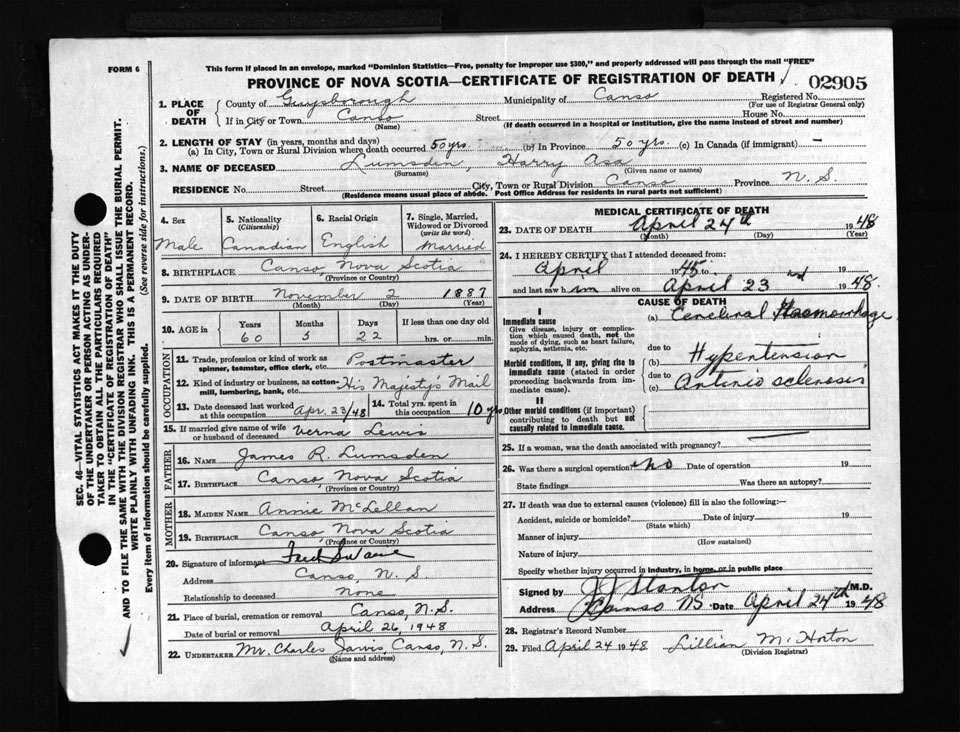 FORM 6
This form if placed in an envelope, marked "Dominion Statistics—Free, penalty for improper use $300," and properly addressed will pass through the mail "FREE"
PROVINCE OF NOVA SCOTIA—CERTIFICATE OF REGISTRATION OF DEATH 02905
1. PLACE OF DEATH County of Guysborough Municipality of Canso Registered No.
(For use of Registrar General only)
If in City or Town Canso Street House No.
(Name) (If death occurred in a hospital or institution, give the name instead of street and number)
2. LENGTH OF STAY (in years, months and days)
(a) In City, Town or Rural Division where death occurred 50 yrs. (b) In Province 50 yrs. (c) In Canada (if immigrant) —
3. NAME OF DECEASED Lumsden, Harry Asa
(Surname) (Given name or names)
RESIDENCE No. Street City, Town or Rural Division Canso Province N. S.
(Residence means usual place of abode. Post Office Address for residents in rural parts not sufficient)
4. Sex Male
5. Nationality (Citizenship) Canadian
6. Racial Origin English
7. Single, Married, Widowed or Divorced (write the word) Married
8. BIRTHPLACE Canso Nova Scotia
(Province or Country)
9. DATE OF BIRTH November 2 1887
(Month) (Day) (Year)
10. AGE in Years Months Days If less than one day old
60 5 22 hrs. or min.
OCCUPATION
11. Trade, profession or kind of work as spinner, teamster, office clerk, etc. Postmaster
12. Kind of industry or business, as cotton-mill, lumbering, bank, etc. His Majesty's Mail
13. Date deceased last worked at this occupation Apr. 23/48
14. Total yrs. spent in this occupation 10 yrs
15. If married give name of wife or husband of deceased Verna Lewis
FATHER
16. NAME James R. Lumsden
17. BIRTHPLACE Canso, Nova Scotia
(Province or Country)
MOTHER
18. MAIDEN NAME Annie McLellan
19. BIRTHPLACE Canso, Nova Scotia
(Province or Country)
20. Signature of informant
Address Canso, N. S.
Relationship to deceased None
21. Place of burial, cremation or removal Canso, N. S.
Date of burial or removal April 26, 1948
22. UNDERTAKER Mr. Charles Jarvis, Canso, N. S.
(Name and address)
MEDICAL CERTIFICATE OF DEATH
23. DATE OF DEATH April 24th 1948
(Month) (Day) (Year)
24. I HEREBY CERTIFY that I attended deceased from:
April 1945 to 19
and last saw him alive on April 23rd 1948.
CAUSE OF DEATH
I
Immediate cause
Give disease, injury or complication which caused death, not the mode of dying, such as heart failure, asphyxia, asthenia, etc.
(a) Cerebral Haemorrhage
due to
Morbid conditions, if any, giving rise to immediate cause (stated in order proceeding backwards from immediate cause).
(b) Hypertension
due to
(c) Arterio sclerosis
II
Other morbid conditions (if important) contributing to death but not causally related to immediate cause.
25. If a woman, was the death associated with pregnancy?
26. Was there a surgical operation? no Date of operation 19
State findings Was there an autopsy?
27. If death was due to external causes (violence) fill in also the following:—
Accident, suicide or homicide? Date of injury 19
(State which)
Manner of injury
(How sustained)
Nature of injury
Specify whether injury occurred in industry, in home, or in public place
Signed by J J Stanton M.D.
Address Canso NS Date April 24th 1948
28. Registrar's Record Number
29. Filed April 24 1948 Lillian M. Horton
(Division Registrar)
SEC. 46—VITAL STATISTICS ACT MAKES IT THE DUTY
OF THE UNDERTAKER OR PERSON ACTING AS UNDER-
TAKER TO OBTAIN ALL THE PARTICULARS REQUIRED
IN THE "CERTIFICATE OF REGISTRATION OF DEATH"
AND TO FILE THE SAME WITH THE DIVISION REGISTRAR WHO SHALL ISSUE THE BURIAL PERMIT.
WRITE PLAINLY WITH UNFADING INK. THIS IS A PERMANENT RECORD.
Every item of information should be carefully supplied. (See reverse side for instructions.)